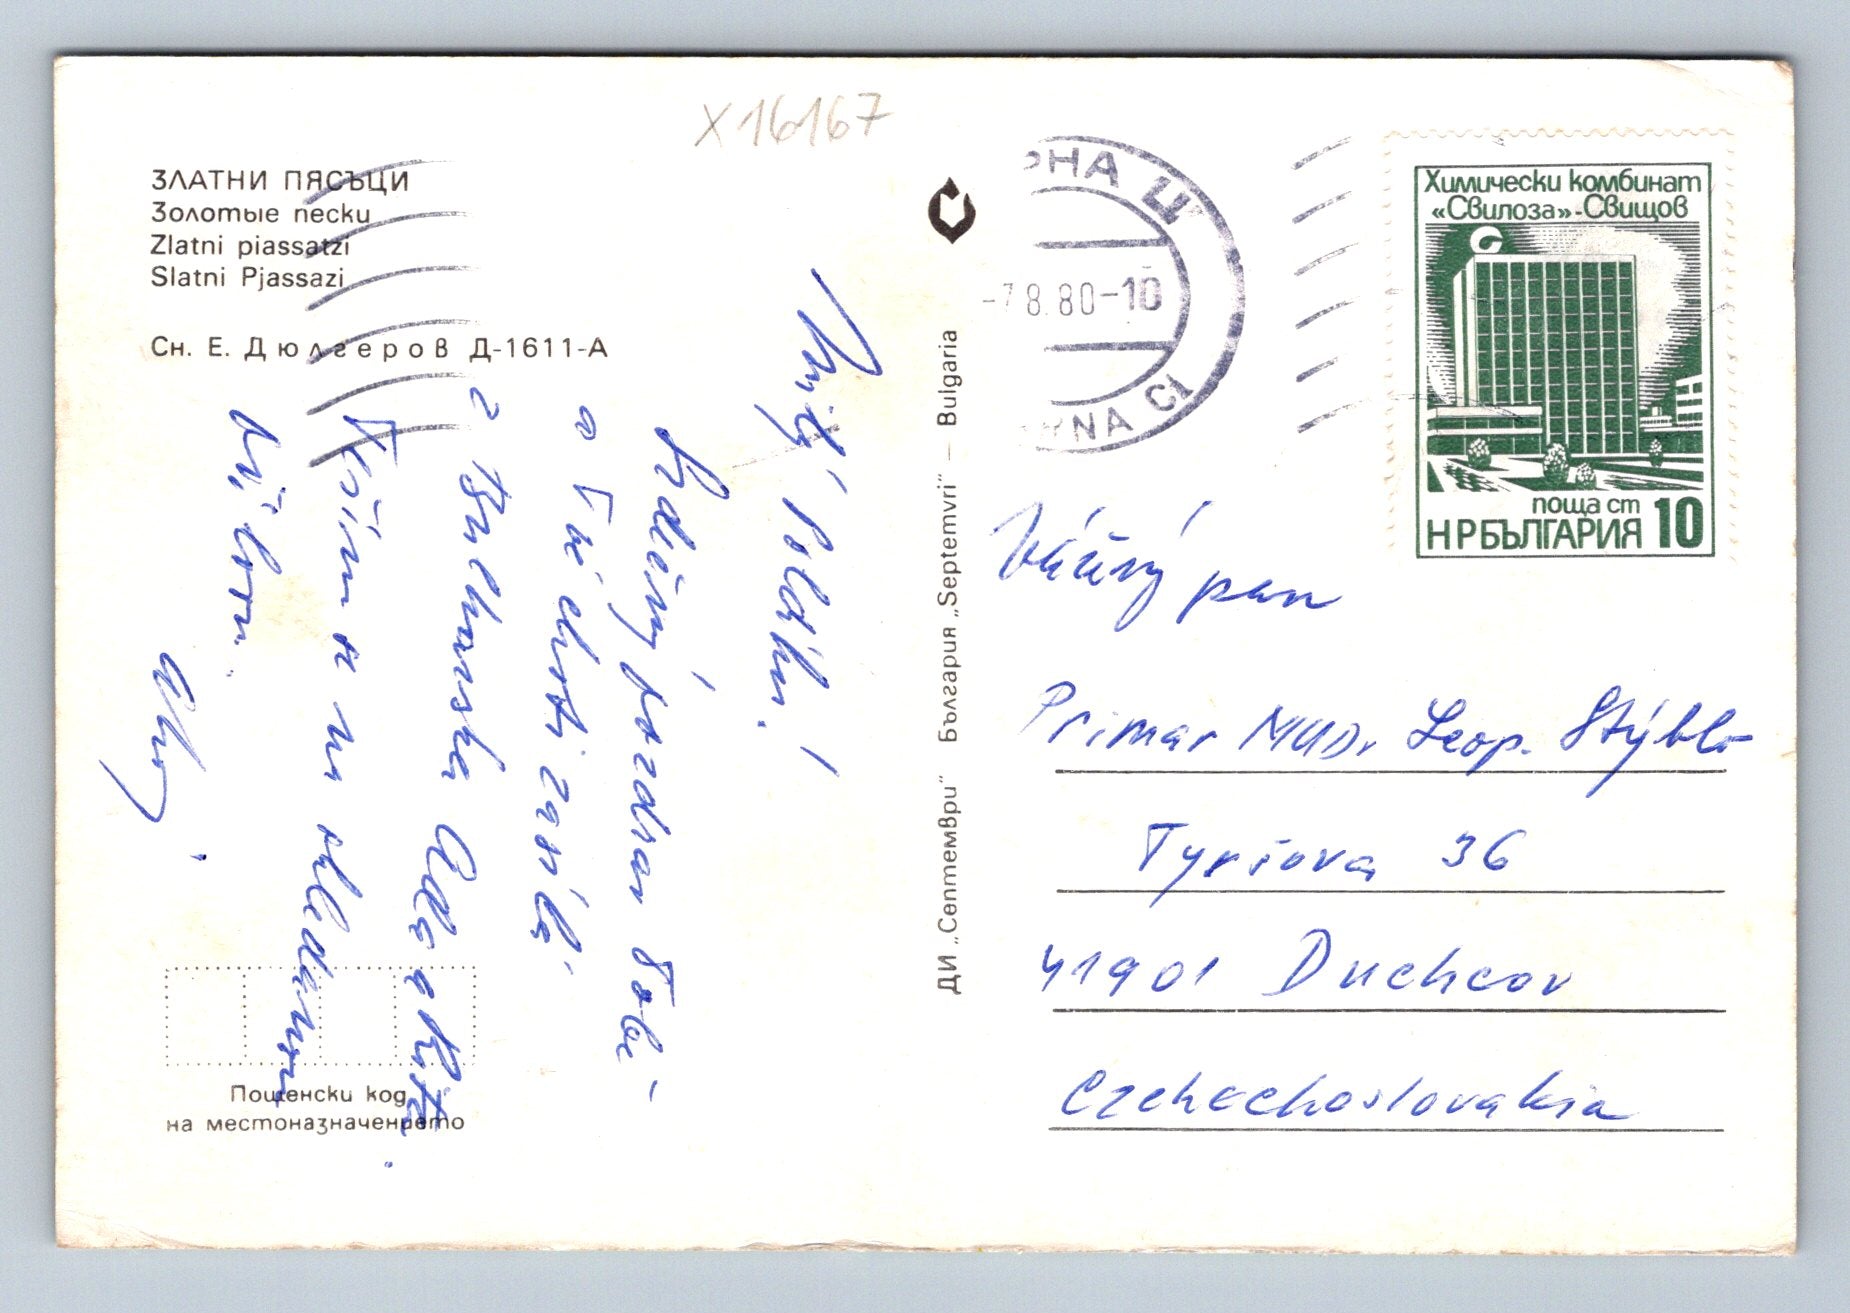 X16167
ЗЛАТНИ ПЯСЪЦИ
Золотые пески
Zlatni piassatzi
Slatni Pjassazi
Сн. Е. Дюлгеров Д-1611-А
Milý Poldíku!
Srdečný pozdrav Tobě
a Tvé choti zasílá
z Bulharska Alla a Rita.
Těším se na shledanou
Пощенски код
на местоназначението
ДИ „Септември" България „Septemvri" — Bulgaria
РНА Ц
-7.8.80-10
RNA CI
Химически комбинат
«Свилоза»-Свищов
поща ст
НР БЪЛГАРИЯ 10
Vážený pan
Primar MUDr Leop. Stýblo
Tyršova 36
41901 Duchcov
Czechechoslovakia